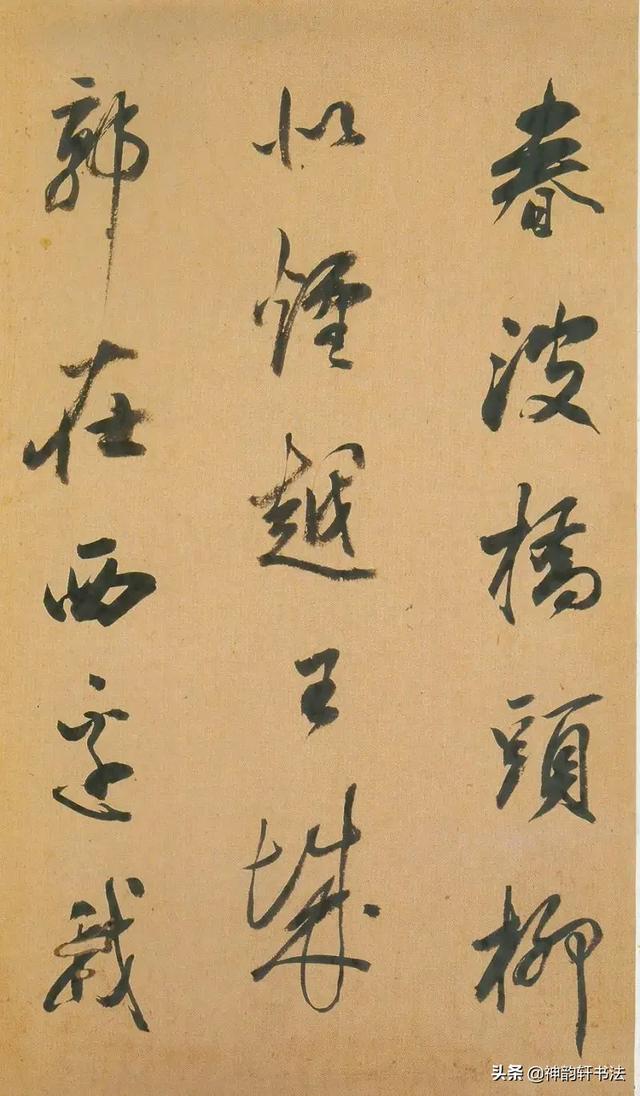 春波橋頭柳
似煙越王城
郭在西邊哉
头条 @神韵轩书法